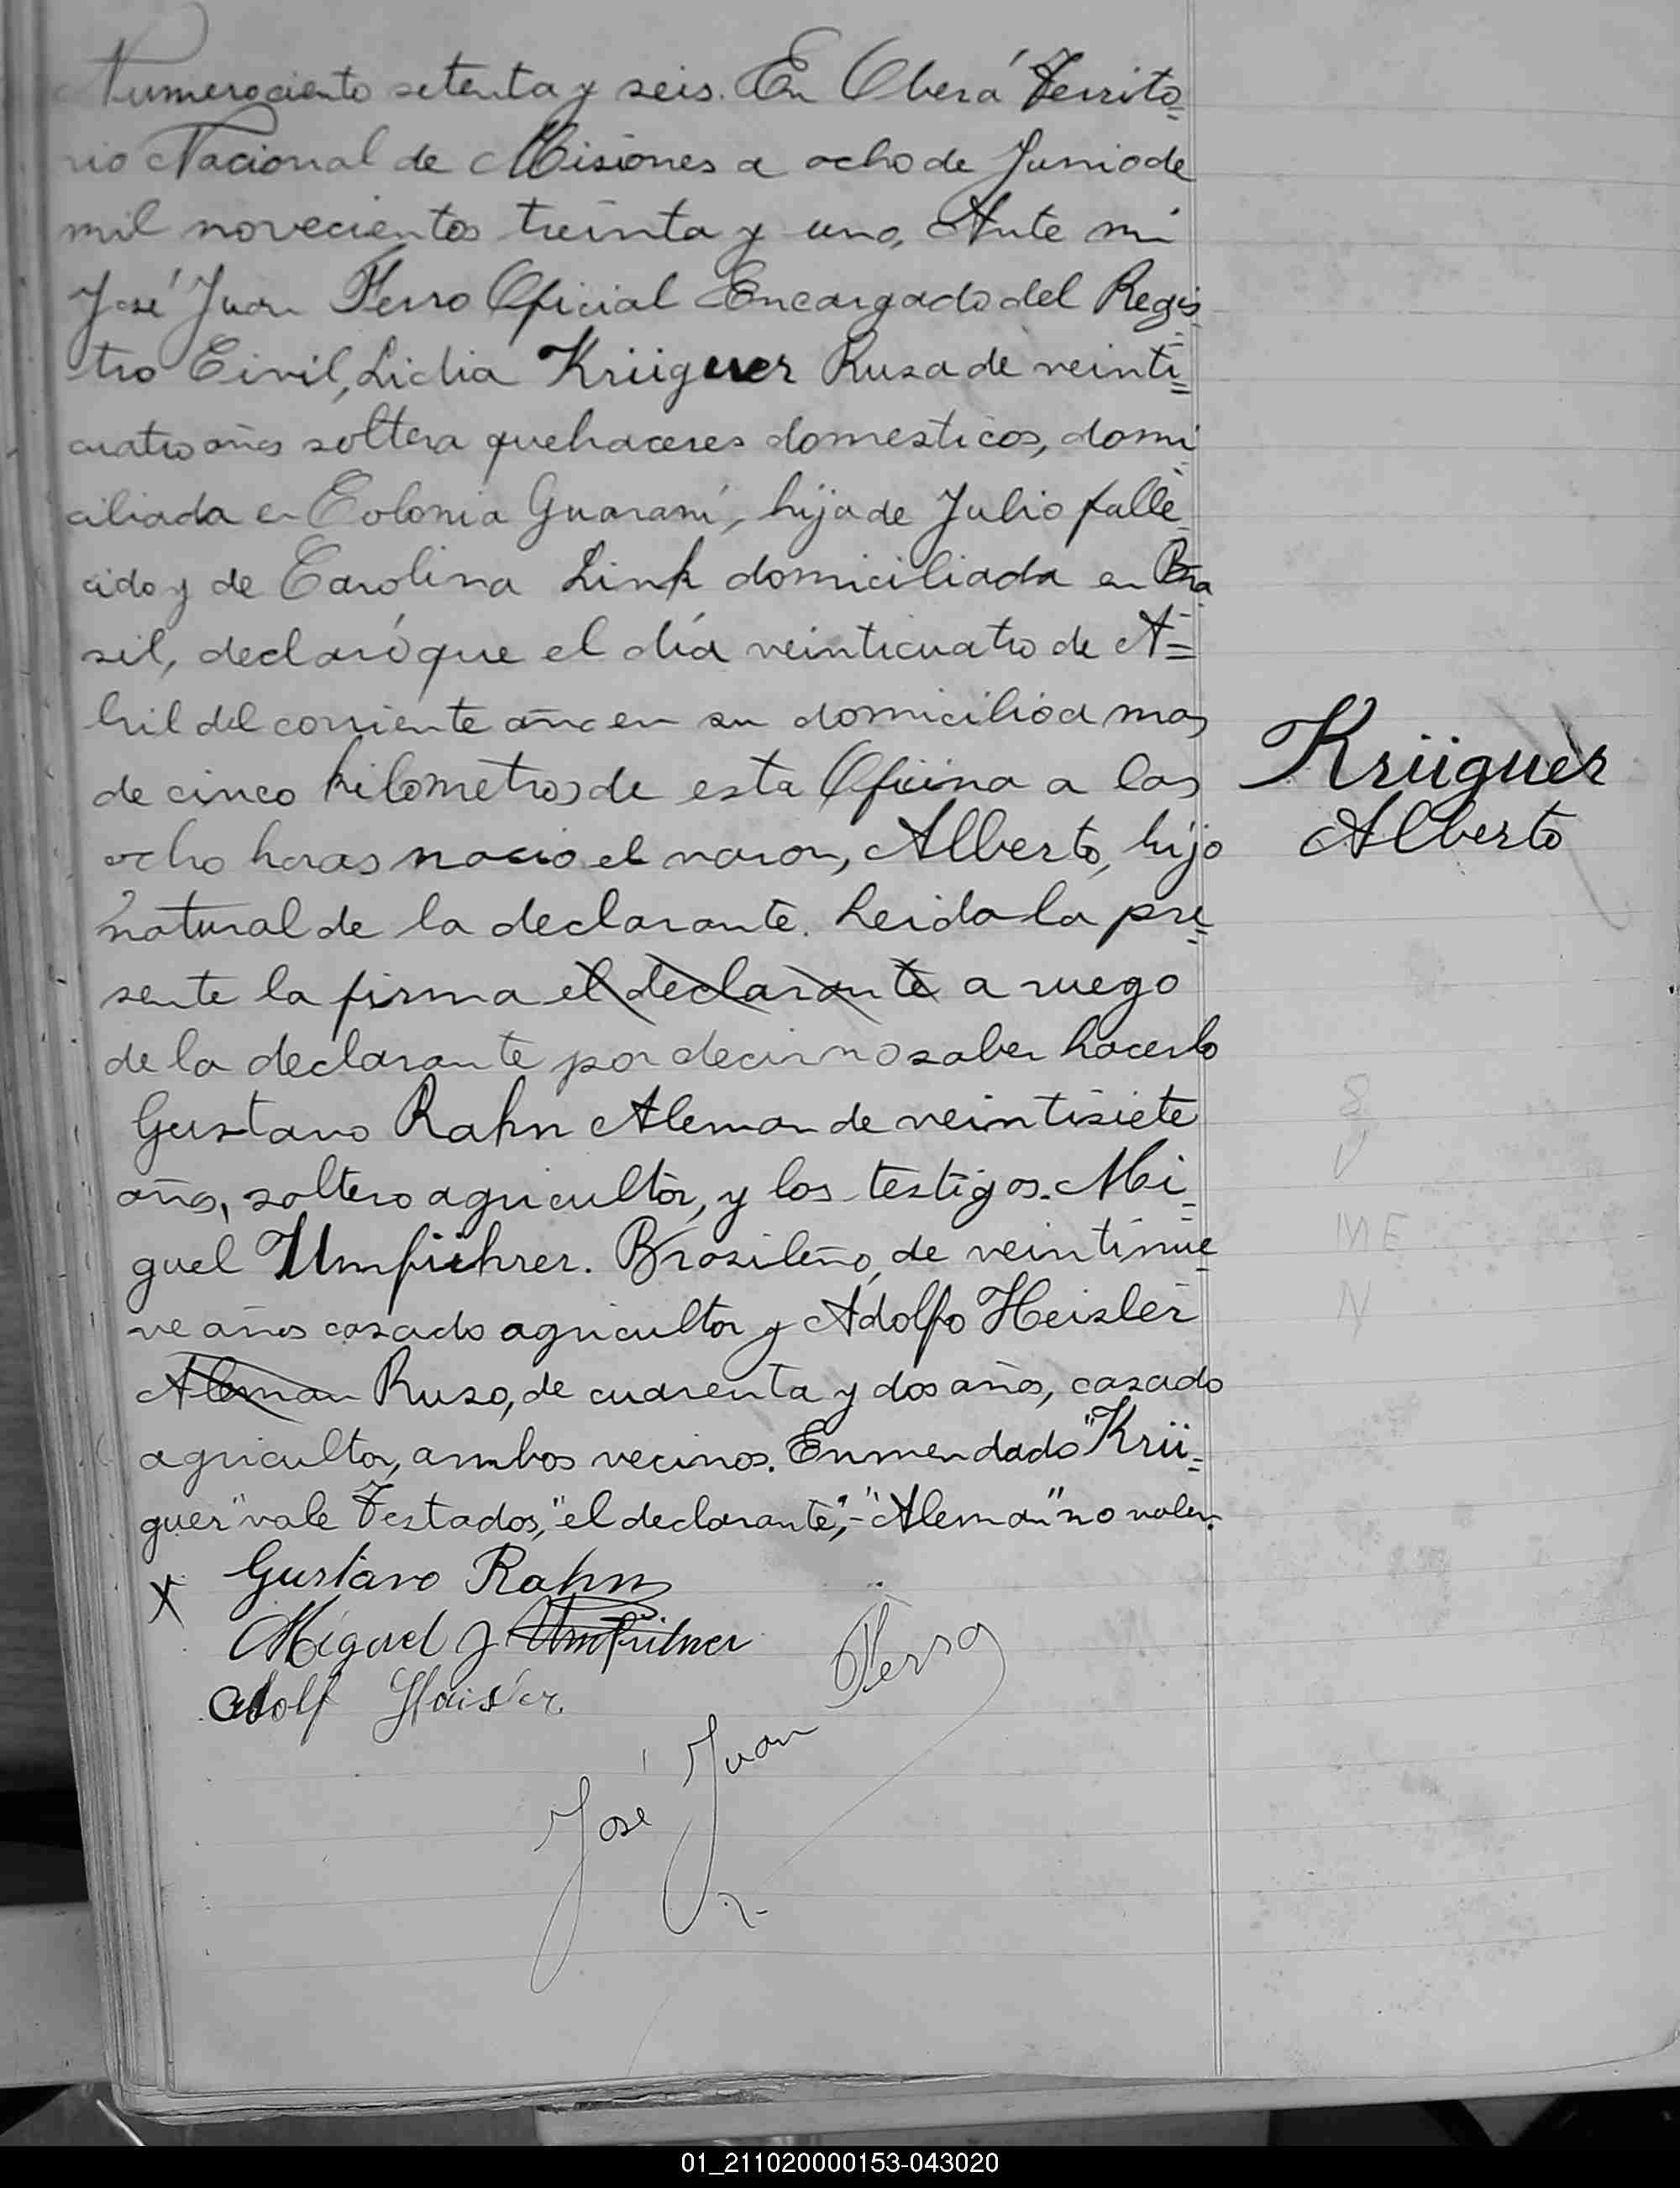 Numero ciento setenta y seis. En Oberá Territo=
rio Nacional de Misiones a ocho de Junio de
mil novecientos treinta y uno, Ante mi
José Juan Ferro Oficial Encargado del Regis=
tro Civil, Lidia Krüiguer Rusa de veinti=
cuatro años soltera quehaceres domesticos, domi=
ciliada en Colonia Guaraní, hija de Julio falle=
cido y de Carolina Link domiciliada en Bra=
sil, declaró que el día veinticuatro de A=
bril del corriente año en su domicilio a mas
de cinco kilometros de esta Oficina a las
ocho horas nacio el varon, Alberto, hijo
natural de la declarante. Leida la pre=
sente la firma el declarante a ruego
de la declarante por decir no saber hacerlo
Gustavo Rahn Aleman de veintisiete
años, soltero agricultor, y los testigos. Mi=
guel Umführer. Brasileño, de veintinue=
ve años casado agricultor y Adolfo Heisler
Aleman Ruso, de cuarenta y dos años, casado
agricultor, ambos vecinos. Enmendado "Krüi=
guer" vale Testados, "el declarante", - "Aleman" no valen.
Krüiguer
Alberto
S
V
ME
N
X Gustavo Rahn
Miguel J Umführer
Adolf Haisler.
José Juan Ferro
01_211020000153-043020